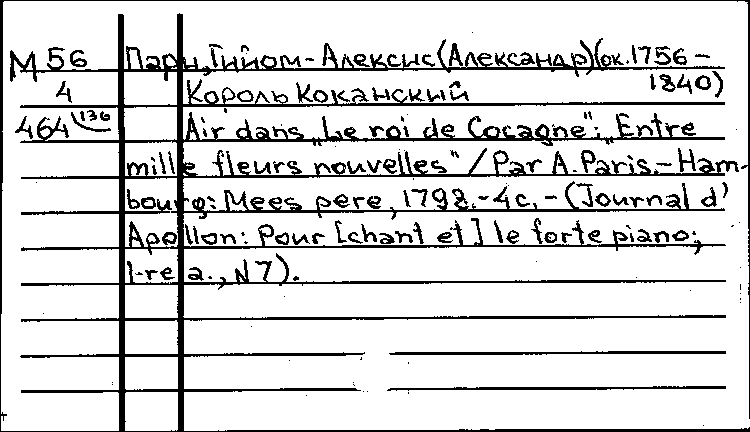 М 56 Пари, Гийом-Алексис (Александр) (ок. 1756 –
4 Король Коканский 1840)
464 136 Air dans „Le roi de Cocagne": „Entre
mille fleurs nouvelles" / Par A. Paris. – Ham-
bourg: Mees pere, 1798. – 4 с. – (Journal d'
Apollon: Pour [chant et] le forte piano;
1-re a., N 7).